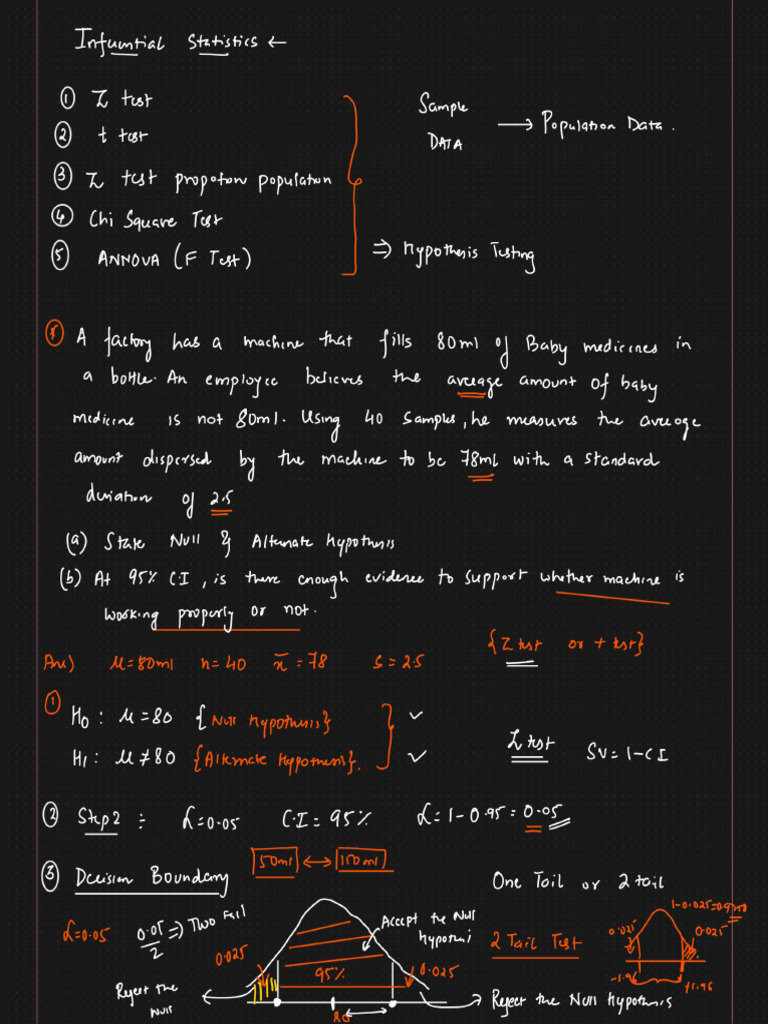 Infuential Statistics ←
① Z test
② t test
③ Z test propotion population
④ Chi Square Test
⑤ ANNOVA (F Test)
Sample
DATA → Population Data.
⇒ Hypothesis Testing
A factory has a machine that fills 80ml of Baby medicines in
a bottle. An employee believes the average amount of baby
medicine is not 80ml. Using 40 samples, he measures the average
amount dispersed by the machine to be 78ml with a standard
duviation of 2.5
(a) State Null & Alternate Hypothesis
(b) At 95% C.I, is there enough evidence to support whether machine is
working properly or not.
{Z test or t test}
Ans) μ=80ml n=40 x̄=78 s=2.5
① H0: μ=80 {Null Hypothesis} ✓
H1: μ≠80 {Alternate Hypothesis}. ✓
Z test SV=1-CI
② Step2 : α=0.05 C.I=95% α=1-0.95=0.05
③ Decision Boundary
50ml ↔ 100ml
One Tail or 2 tail
α=0.05 0.05/2 ⇒) Two Tail
Accept the Null
Hypothesi
2 Tail Test
1-0.025=0.9750
0.025 0.025
-1.96 +1.96
0.025 95% 0.025
Reject the
Null
→ Reject the Null Hypothesis
80